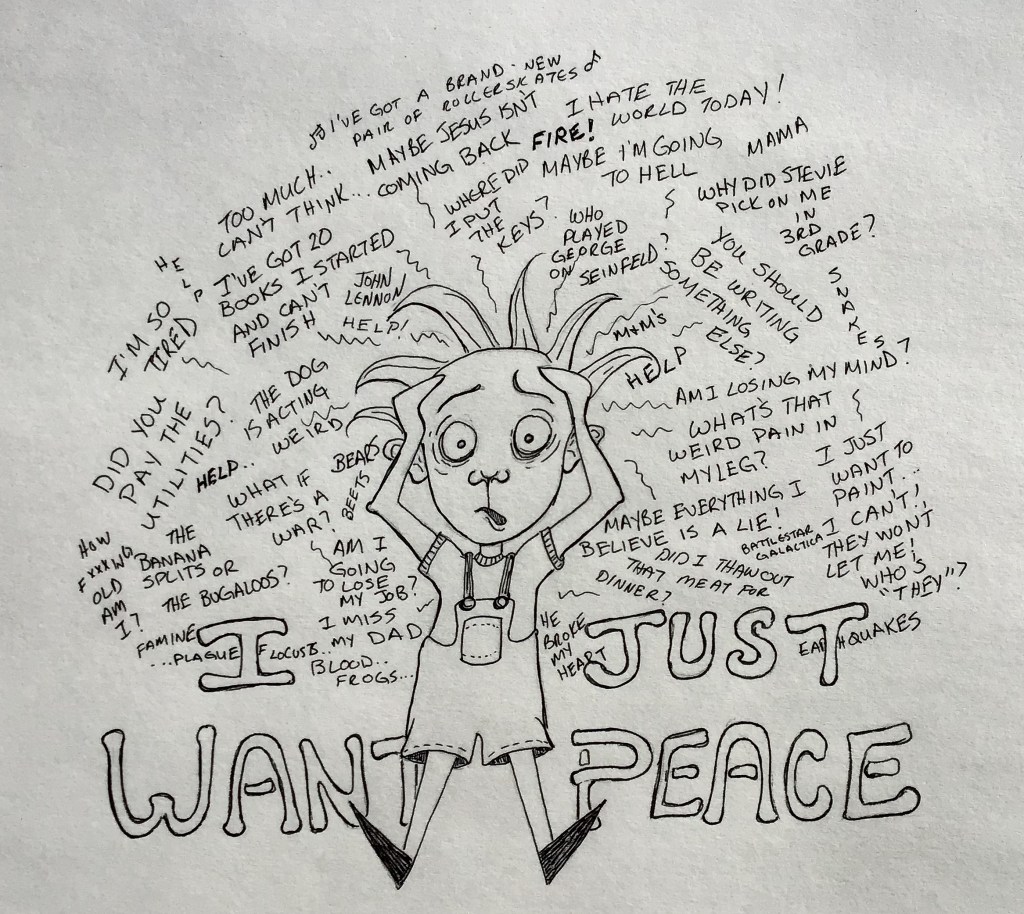 I'VE GOT A BRAND-NEW
PAIR OF ROLLERSKATES
TOO MUCH..
CAN'T THINK...
MAYBE JESUS ISN'T
COMING BACK
FIRE!
I HATE THE
WORLD TODAY!
WHERE DID
I PUT
THE
KEYS?
MAYBE I'M GOING
TO HELL
MAMA
WHY DID STEVIE
PICK ON ME
IN
3RD
GRADE?
WHO
PLAYED
GEORGE
ON
SEINFELD?
YOU SHOULD
BE WRITING
SOMETHING
ELSE?
SNAKES
HELP
I'M SO
TIRED
I'VE GOT 20
BOOKS I STARTED
AND CAN'T
FINISH
JOHN
LENNON
HELP!
M+M's
HELP
AM I LOSING MY MIND?
DID YOU
PAY THE
UTILITIES?
THE DOG
IS ACTING
WEIRD
HELP..
WHAT'S THAT
WEIRD PAIN IN
MY LEG?
WHAT IF
THERE'S A
WAR?
BEARS
BEETS
BATTLESTAR
GALACTICA
I JUST
WANT TO
PAINT...
I CAN'T!
THEY WON'T
LET ME!
WHO'S
"THEY"?
MAYBE EVERYTHING I
BELIEVE IS A LIE!
DID I THAW OUT
THAT MEAT FOR
DINNER?
HOW
FXXKNG
OLD
AM
I?
THE
BANANA
SPLITS OR
THE BUGALOOS?
AM I
GOING
TO LOSE
MY JOB?
I MISS
MY DAD
FAMINE
...PLAGUE
LOCUSTS...
BLOOD..
FROGS...
HE
BROKE
MY
HEART
EARTHQUAKES
I JUST
WANT PEACE